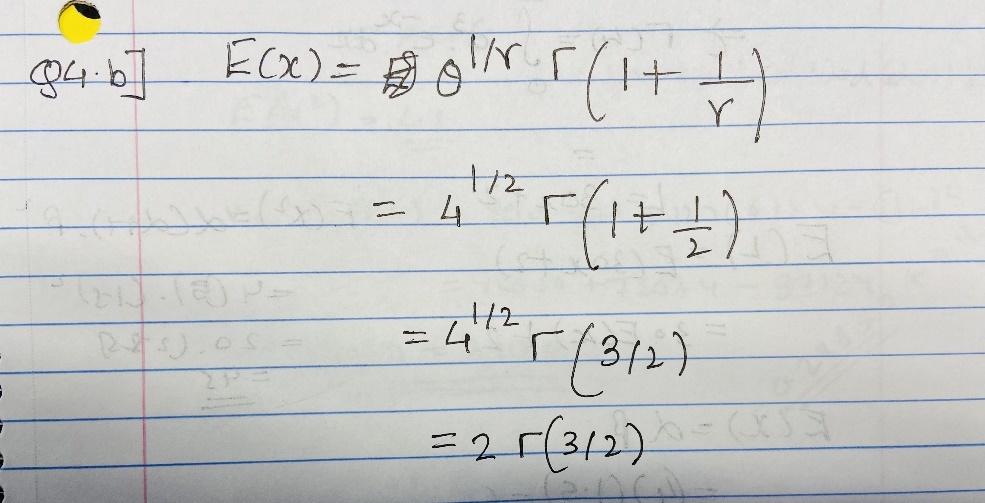 Q4.b] E(x) = θ^{1/r} Γ(1 + 1/r)
= 4^{1/2} Γ(1 + 1/2)
= 4^{1/2} Γ(3/2)
= 2 Γ(3/2)